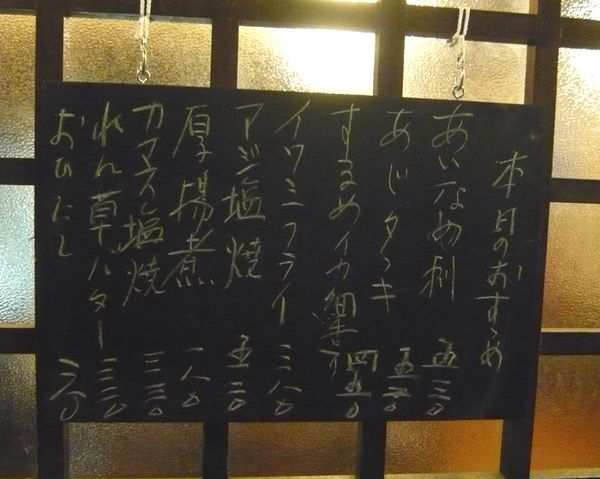 本日のおすゝめ
あいなめ刺 五三〇
あじタゝキ
するめイカ 四五〇
イワシフライ 三八〇
アジ塩焼 五二〇
厚揚煮
カマス塩焼 三三〇
れん草バター 三三〇
おひたし